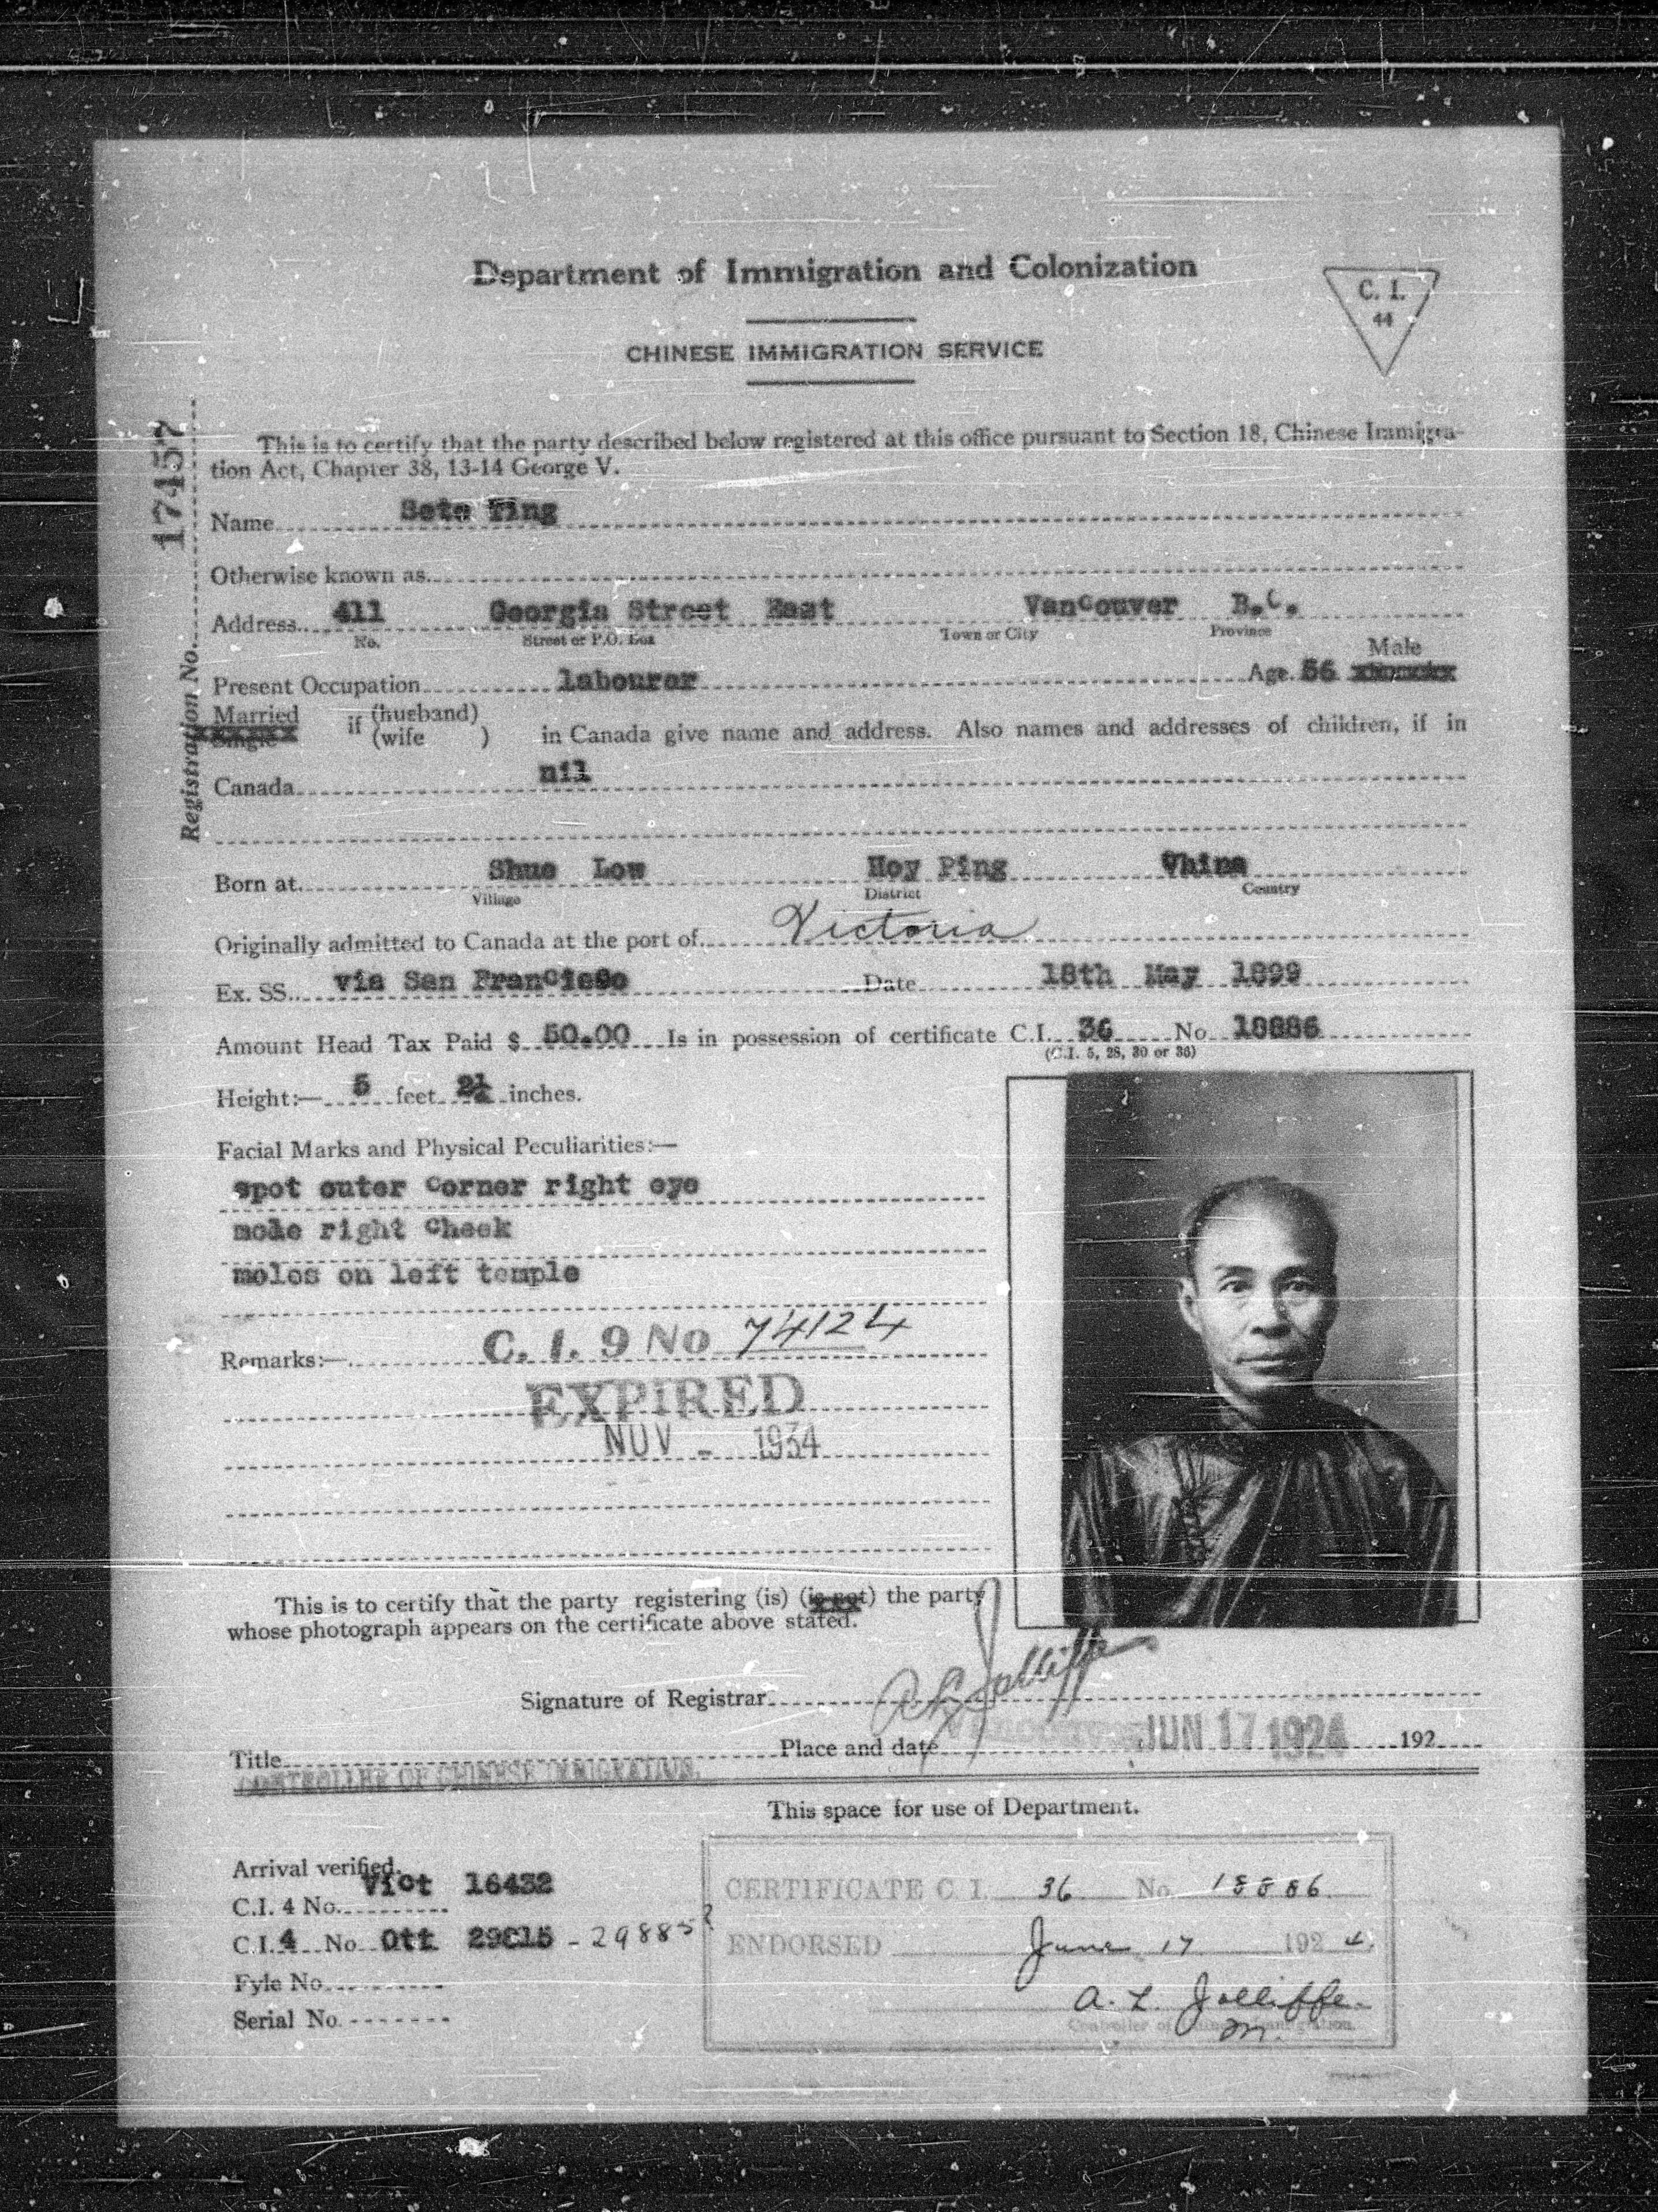 Department of Immigration and Colonization
C. I.
44
CHINESE IMMIGRATION SERVICE
Registration No. 17457
This is to certify that the party described below registered at this office pursuant to Section 18, Chinese Immigra-
tion Act, Chapter 38, 13-14 George V.
Name Seto Ying
Otherwise known as
Address 411 Georgia Street East Vancouver B.C.
No. Street or P.O. Box Town or City Province
Male
Present Occupation labourer Age 56
Married if (husband)
Single (wife ) in Canada give name and address. Also names and addresses of children, if in
Canada nil
Born at Shue Low Hoy Ping Vhina
Village District Country
Originally admitted to Canada at the port of Victoria
Ex. SS. via San Francisco Date 18th May 1899
Amount Head Tax Paid $ 50.00 Is in possession of certificate C.I. 36 No 18886
(C.I. 5, 28, 30 or 36)
Height:— 5 feet 2½ inches.
Facial Marks and Physical Peculiarities:—
spot outer corner right eye
mole right cheek
moles on left temple
Remarks:— C. I. 9 No 74124
EXPIRED
NOV - 1934
This is to certify that the party registering (is) (is not) the party
whose photograph appears on the certificate above stated.
Signature of Registrar A L Jolliffe
Place and date VANCOUVER JUN 17 1924 192
Title CONTROLLER OF CHINESE IMMIGRATION.
This space for use of Department.
Arrival verified.
C.I. 4 No. Vict 16432
C.I. 4 No Ott 29815 - 29885
Fyle No.
Serial No.
CERTIFICATE C. I. 36 No. 18886
ENDORSED June 17 1924.
A. L. Jolliffe
Controller of Chinese Immigration